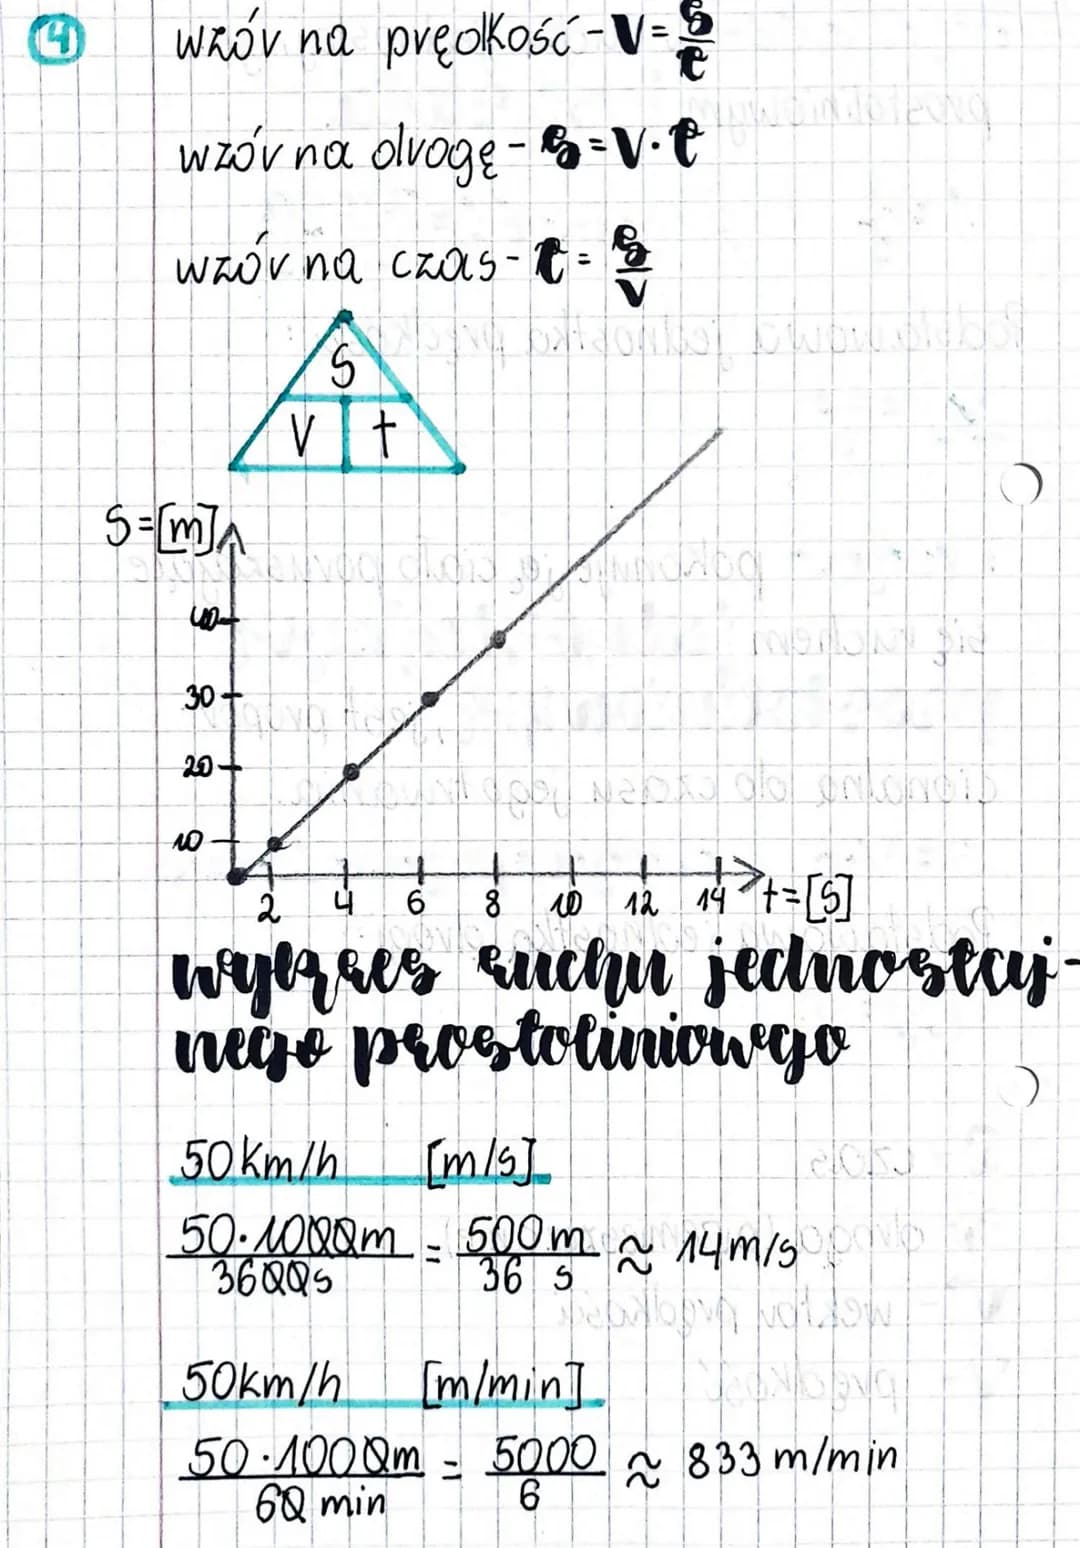 4
wzór na prędkość - V = s/t
wzór na drogę - s = V · t
wzór na czas - t = s/v
S
V t
S = [m]
40
30
20
10
2 4 6 8 10 12 14 t = [s]
wykres ruchu jednostaj-
nego prostoliniowego
50 km/h [m/s]
50 · 1000m / 3600s = 500 m / 36 s ≈ 14 m/s
50 km/h [m/min]
50 · 1000m / 60 min = 5000 / 6 ≈ 833 m/min